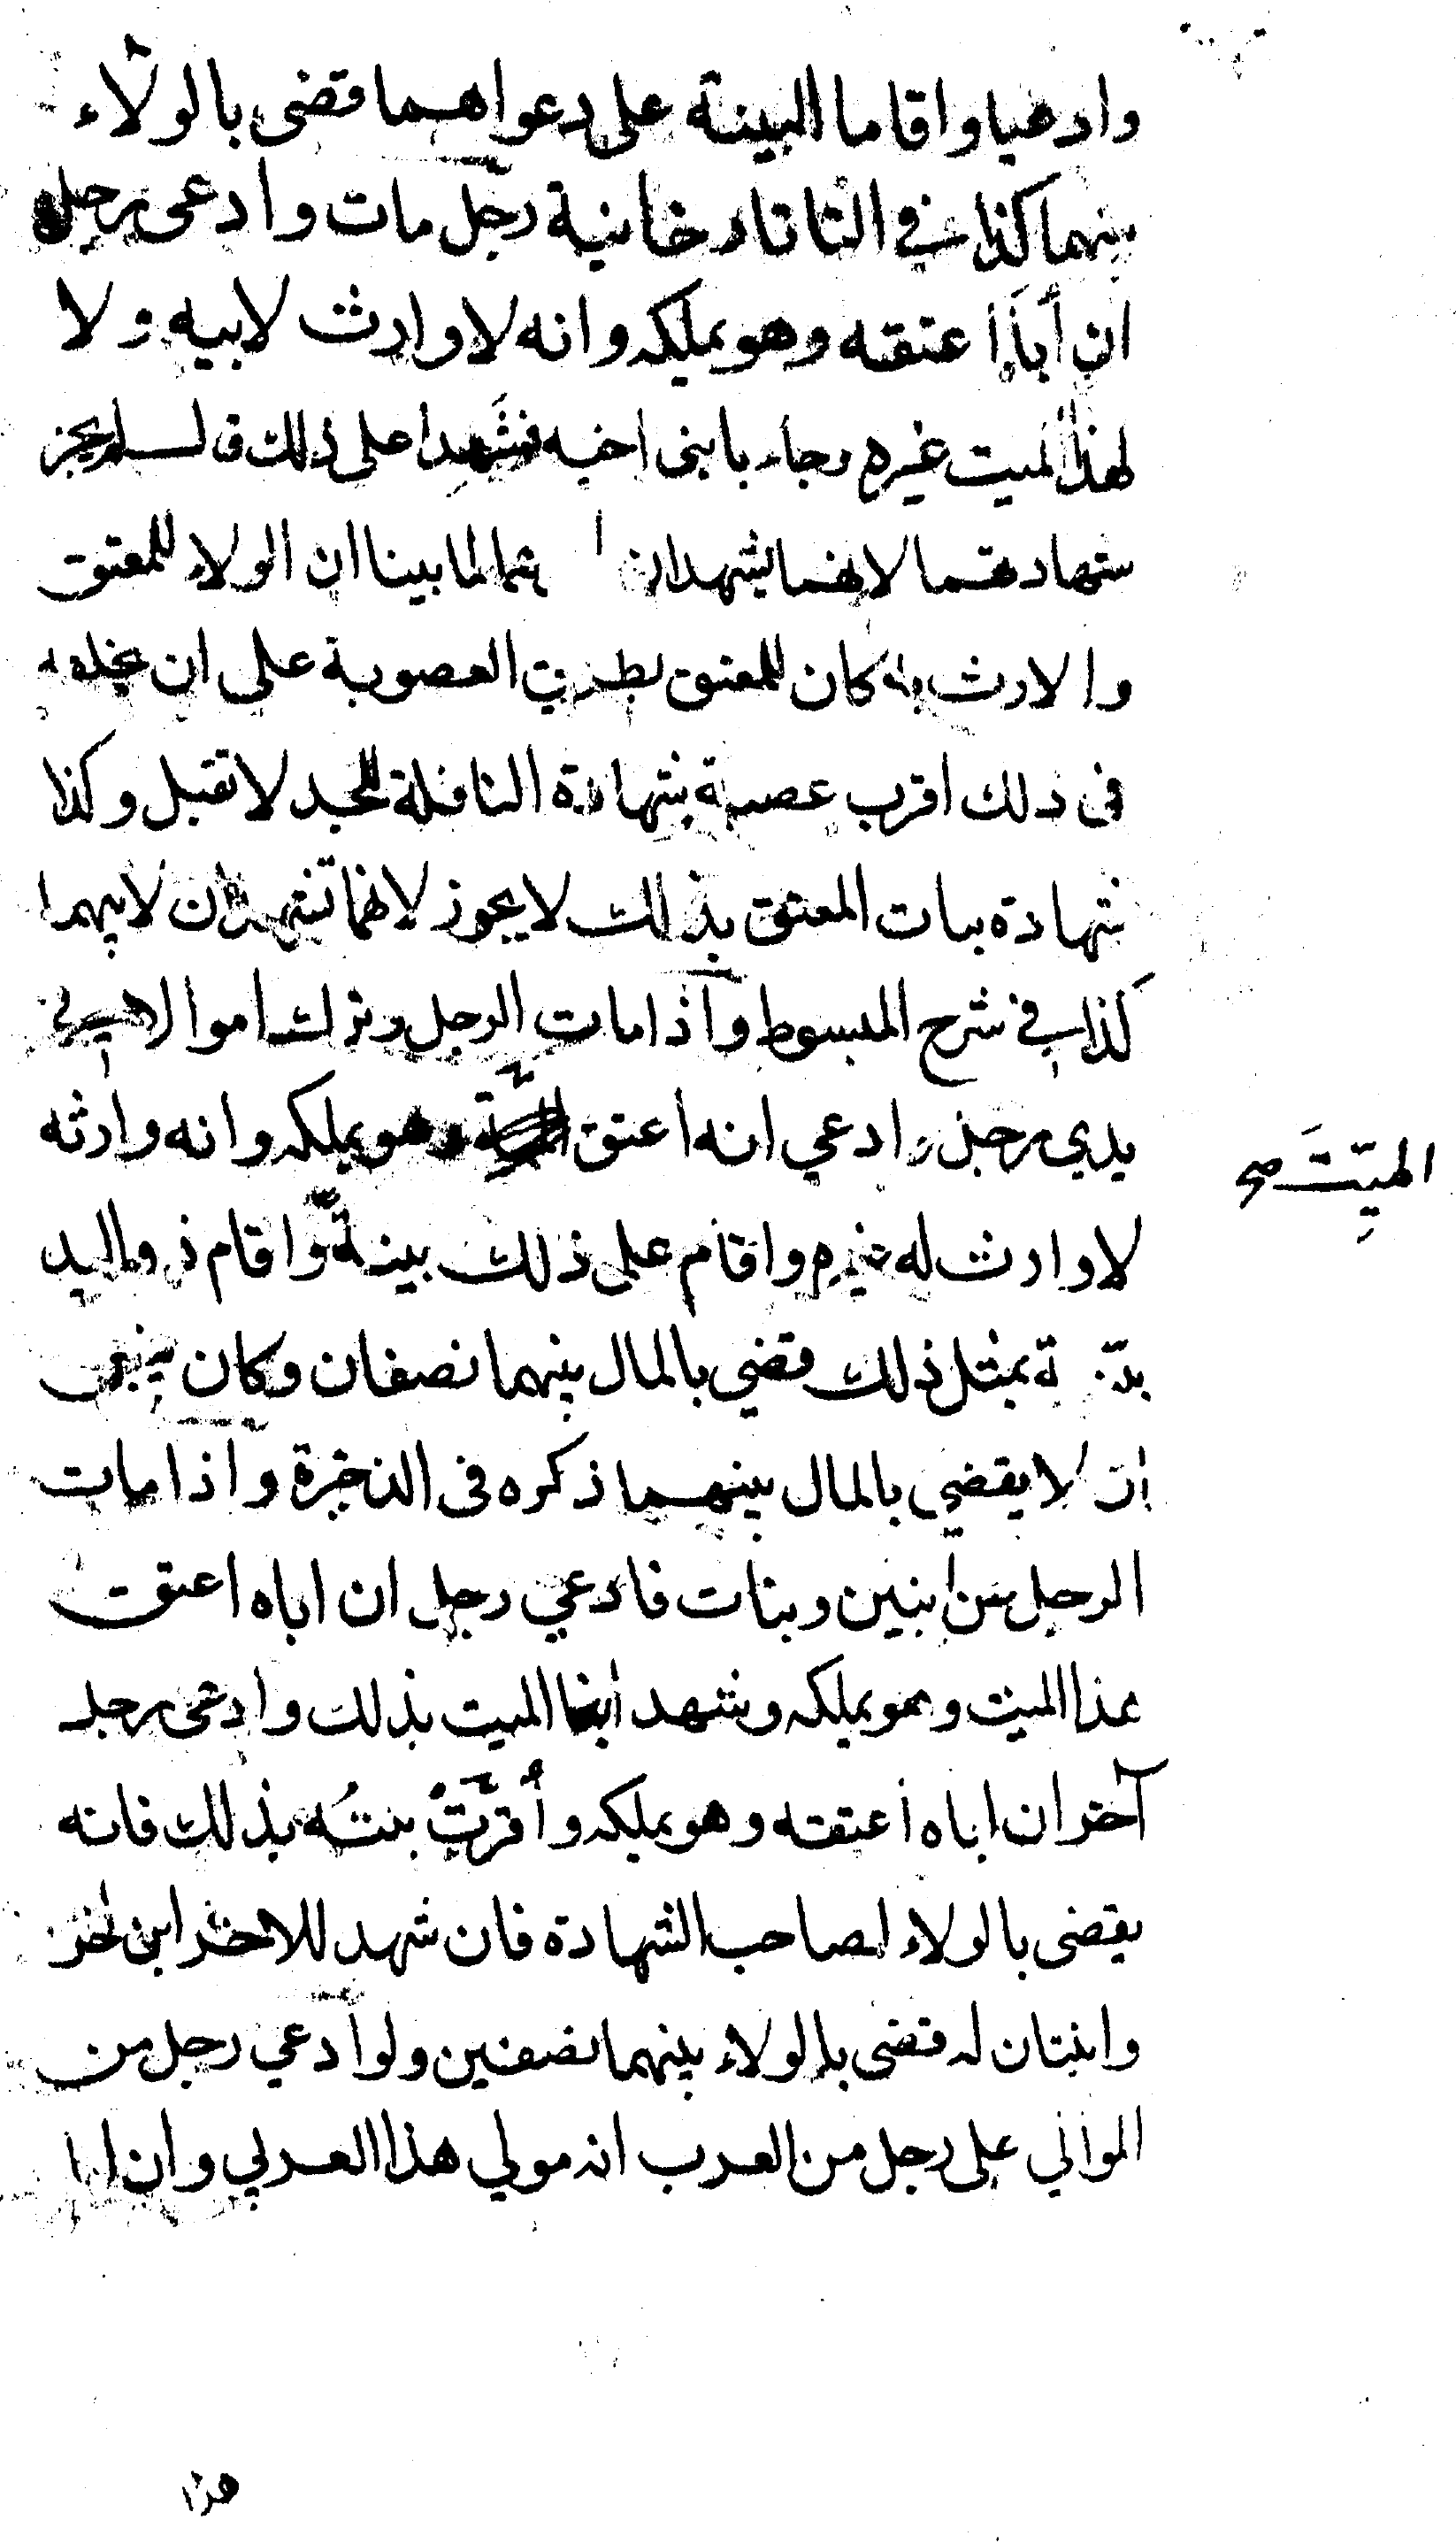 وادعيا واقاما البينة على دعواهما قضى بالولاء
بينهما كذا في التاتارخانية رجل مات وادعى رجل
ان أباه اعتقه وهو يملكه وانه لا وارث لابيه ولا
لهذا الميت غيره وجاء بابنى اخيه فشهدا على ذلك قال لم يجز
شهادتهما لانهما يشهدان لما بينا ان الولاء للمعتق
والارث به كان للمعتق بطريق العصوبة على ان يخلفه
فى ذلك اقرب عصبة شهادة النافلة للجد لا تقبل وكذا
شهادة بنات المعتق بذلك لا يجوز لانهما تشهدان لابيهما
كذا في شرح المبسوط واذا مات الرجل وترك اموالا في
يدي رجل وادعي انه اعتق وهو يملكه وانه وارثه
الميت صح
لا وارث له غيره واقام على ذلك بينة واقام ذو اليد
بينة بمثل ذلك قضي بالمال بينهما نصفان وكان ينبغي
ان لا يقضي بالمال بينهما ذكره فى الذخيرة واذا مات
الرجل عن ابنين وبنات فادعي رجل ان اباه اعتق
هذا الميت وهو يملكه وشهد ابنا الميت بذلك وادعى رجل
آخر ان اباه اعتقته وهو يملكه وأقرت بنته بذلك فانه
يقضى بالولاء لصاحب الشهادة فان شهد للاخر ابن اخر
وابنتان له قضى بالولاء بينهما نصفين ولو ادعي رجل من
الموالي على رجل من العرب انه مولي هذا العربي وان ابا
هذا